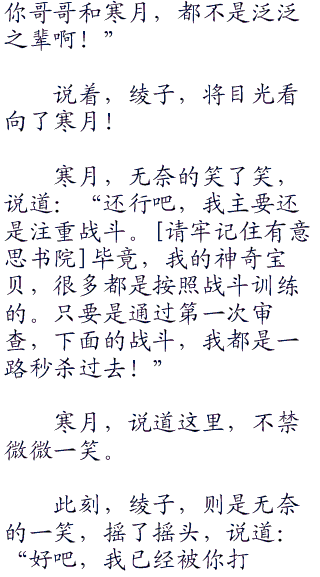 你哥哥和寒月，都不是泛泛
之辈啊！”
说着，绫子，将目光看
向了寒月！
寒月，无奈的笑了笑，
说道：“还行吧，我主要还
是注重战斗。[请牢记住有意
思书院]毕竟，我的神奇宝
贝，很多都是按照战斗训练
的。只要是通过第一次审
查，下面的战斗，我都是一
路秒杀过去！”
寒月，说道这里，不禁
微微一笑。
此刻，绫子，则是无奈
的一笑，摇了摇头，说道：
“好吧，我已经被你打